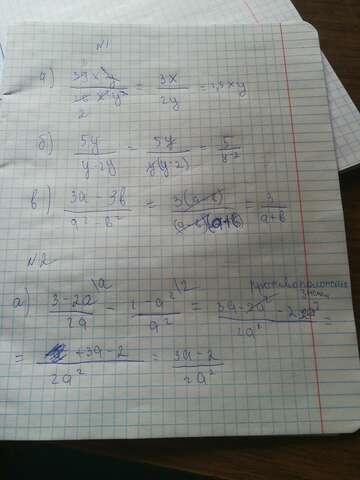 №1
а) 39x³y / 26x²y² = 3x / 2y = 1,5xy
2
б) 5y / y-2y = 5y / y(y-2) = 5 / y-2
в) 3a-3b / a²-b² = 3(a-b) / (a-b)(a+b) = 3 / a+b
№2
а) 3-2a\a / 2a - 1-a²\2 / a² = 3a-2a² - 2 2a² / 2a² =
= +3a-2 / 2a² = 3a-2 / 2a²